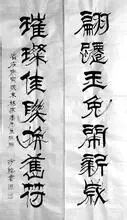 翩躚玉兔開新歲
璀璨佳聯換舊符